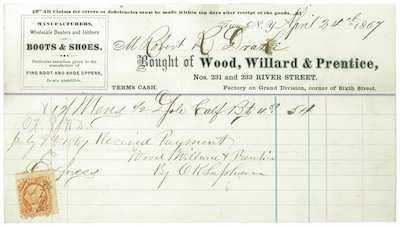 All Claims for errors or deficiencies must be made within ten days after receipt of the goods.
MANUFACTURERS,
Wholesale Dealers and Jobbers
BOOTS & SHOES.
Particular attention given to the
manufacture of
FINE BOOT AND SHOE UPPERS,
In any quantities.
Troy, N. Y. April 24th 1867
M Robert R Drake
Bought of Wood, Willard & Prentice,
Nos. 231 and 233 RIVER STREET.
TERMS CASH.
Factory on Grand Division, corner of Sixth Street.
12 Mens Calf Bt 4.50 54
July 9th 1867 Received Payment
Wood Willard & Prentice
Express By O K Lapham